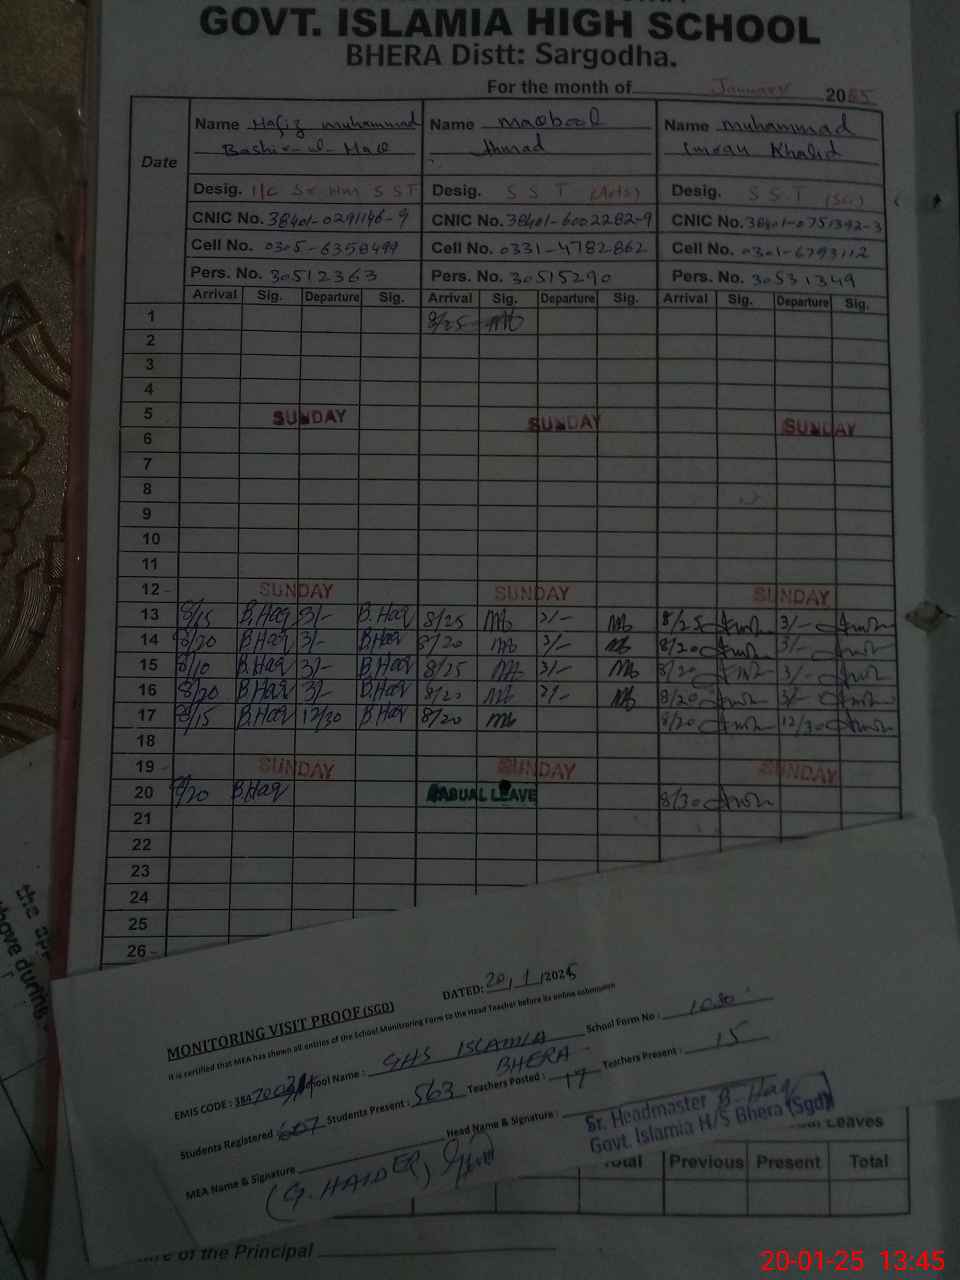 GOVT. ISLAMIA HIGH SCHOOL
BHERA Distt: Sargodha.
For the month of January 20
Date
Name Hafiz muhammad Name Maqbool Name muhammad
Bashir-ul-Haq Ahmad Imran Khalid
Desig. I/C Sr Hm SST Desig. SST (Arts) Desig. S.S.T (Sci)
CNIC No. 38401-0291146-9 CNIC No. 38401-6002282-9 CNIC No. 38401-0751392-3
Cell No. 0305-6358499 Cell No. 0331-4782862 Cell No. 0301-6793112
Pers. No. 30512363 Pers. No. 30515290 Pers. No. 30531349
Arrival Sig. Departure Sig. Arrival Sig. Departure Sig. Arrival Sig. Departure Sig.
1 8/25 Mb
2
3
4
5 SUNDAY SUNDAY SUNDAY
6
7
8
9
10
11
12 SUNDAY SUNDAY SUNDAY
13 8/15 B.Haq 3/- B.Haq 8/25 Mb 3/- Mb 8/25 3/-
14 8/20 B.Haq 3/- B.Haq 8/20 Mb 3/- Mb 8/20 3/-
15 8/10 B.Haq 3/- B.Haq 8/25 Mb 3/- Mb 8/20 3/-
16 8/20 B.Haq 3/- B.Haq Mb 3/- Mb 8/20 3/-
17 8/15 B.Haq 12/30 B.Haq 8/20 Mb 8/20 12/30
18
19 SUNDAY SUNDAY SUNDAY
20 B.Haq CASUAL LEAVE 8/30
21
22
23
24
25
26
the app
have during
MONITORING VISIT PROOF (SGD) DATED: 20/1/2025
It is certified that MEA has shown all entries of the School Monitoring Form to the Head Teacher before its online submission
EMIS CODE: School Name: GHS ISLAMIA BHERA School Form No:
Students Registered 607 Students Present: 563 Teachers Posted: 17 Teachers Present: 15
MEA Name & Signature (G. HAIDER) Head Name & Signature: B.Haq
Sr. Headmaster
Govt. Islamia H/S Bhera (Sgd)
Leaves
Total Previous Present Total
of the Principal
20-01-25 13:45